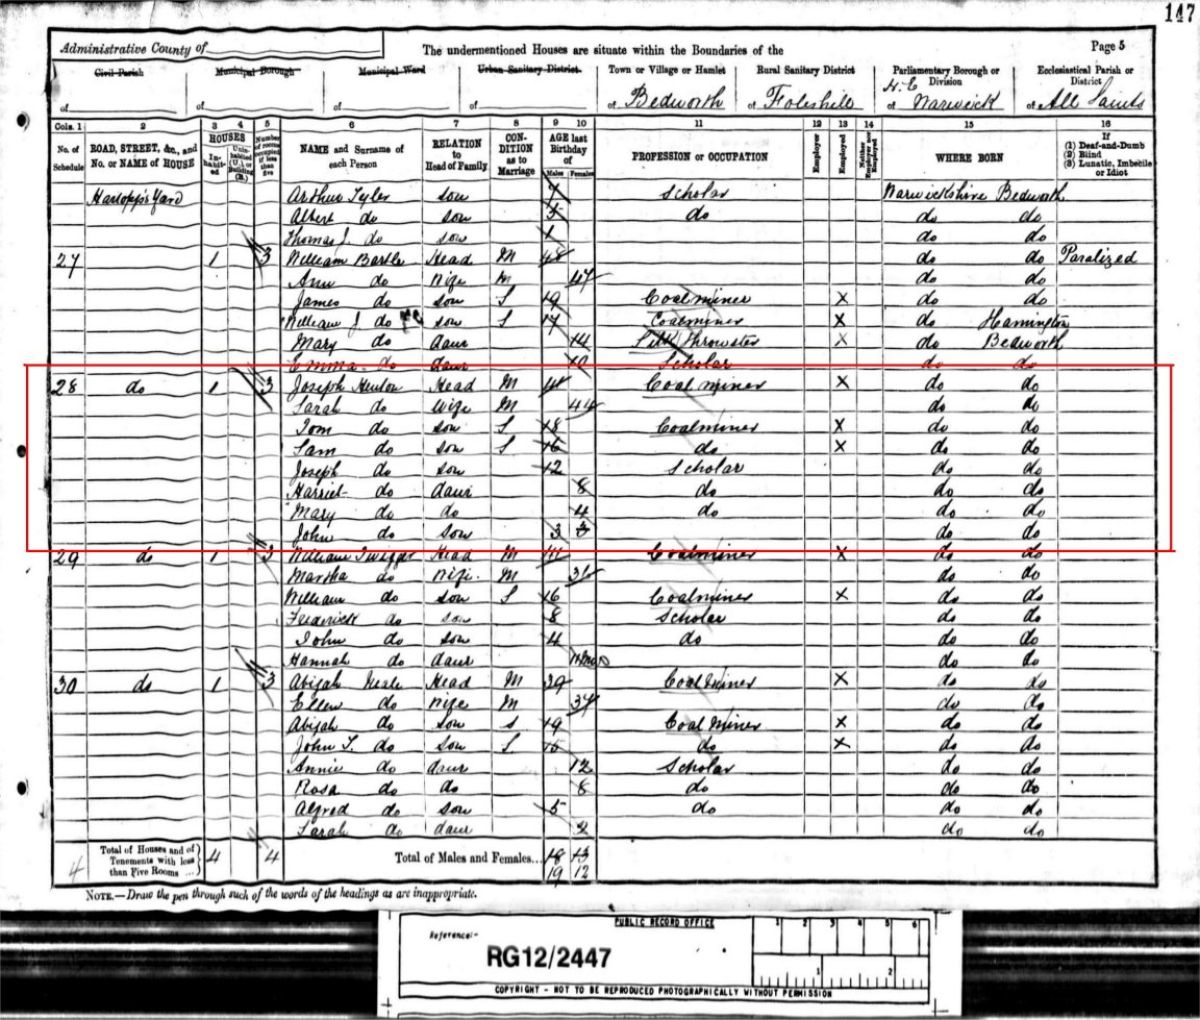 147
Administrative County of
The undermentioned Houses are situate within the Boundaries of the
Page 5
Civil Parish
of
Municipal Borough
of
Municipal Ward
of
Urban Sanitary District
of
Town or Village or Hamlet
of Bedworth
Rural Sanitary District
of Foleshill
Parliamentary Borough or Division
of N.E Warwick
Ecclesiastical Parish or District
of All Saints
Cols. 1 2 3 4 5 6 7 8 9 10 11 12 13 14 15 16
No. of Schedule
ROAD, STREET, &c., and No. or NAME of HOUSE
HOUSES
In-habit-ed
Unin-habited (U.) or Building (B.)
Number of rooms occupied if less than five
NAME and Surname of each Person
RELATION to Head of Family
CON-DITION as to Marriage
AGE last Birthday of
Males Females
PROFESSION or OCCUPATION
Employer
Employed
Neither Employer nor Employed
WHERE BORN
If
(1) Deaf-and-Dumb
(2) Blind
(3) Lunatic, Imbecile or Idiot
Hartopp's Yard Arthur Tyler son 7 Scholar Warwickshire Bedworth
Albert do son 5 do do do
Thomas J. do son 1 do do
27 1 3 William Head M 48 do do Paralized
Ann do Wife M 47 do do
James do son S 19 Coalminer X do do
William J do son S 17 Coalminer X do
Mary do daur 14 Silk Throwster X do Bedworth
Emma do daur 10 Scholar do do
28 do 1 3 Joseph Head M Coal miner X do do
Sarah do Wife M 44 do do
Tom do son S 18 Coalminer X do do
Sam do son S 16 do X do do
Joseph do son 12 Scholar do do
Harriet do daur 8 do do do
Mary do do 4 do do do
John do son 3 do do
29 do 1 3 William Head M Coalminer X do do
Martha do Wife M do do
William do son S 16 Coalminer X do do
Frederick do son 8 Scholar do do
John do son 4 do do do
Hannah do daur do do
30 do 1 3 Abijah Neale Head M 39 Coal Miner X do do
Ellen do Wife M 37 do do
Abijah do son s 19 Coal Miner X do do
John T. do son S 15 do X do do
Annie do daur 12 Scholar do do
Rosa do do 8 do do do
Alfred do son 5 do do do
Sarah do daur 2 do do
4 Total of Houses and of Tenements with less than Five Rooms ... 4 4
Total of Males and Females... 18 13
19 12
NOTE.—Draw the pen through such of the words of the headings as are inappropriate.
PUBLIC RECORD OFFICE
Reference:-
1 2 3 4 5 6
1 2
RG12/2447
COPYRIGHT - NOT TO BE REPRODUCED PHOTOGRAPHICALLY WITHOUT PERMISSION